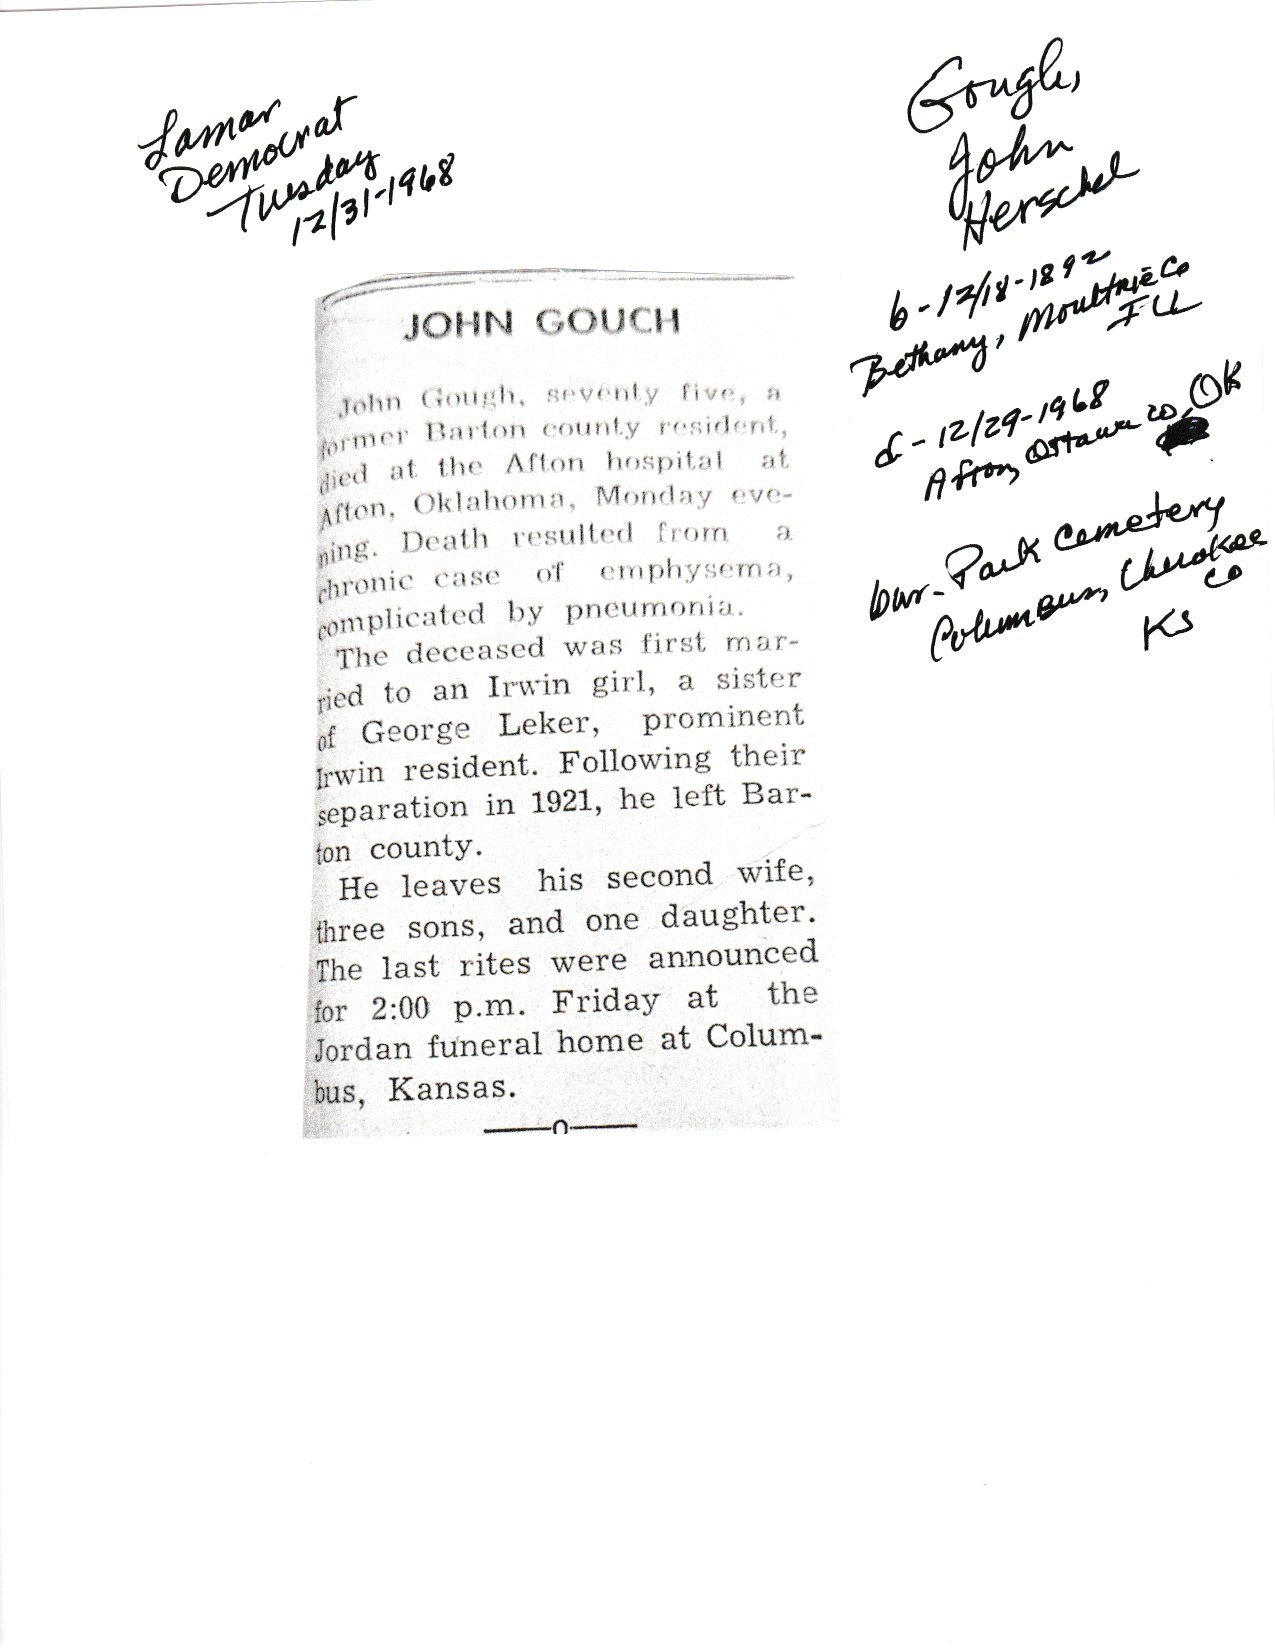 Lamar
Democrat
Tuesday
12/31-1968
Gough,
John
Herschel
b-12/18-1892
Bethany, Moultrie Co
ILL
d-12/29-1968
Afton, Ottawa co, OK
bur- Park Cemetery
Columbus, Cherokee
Co
KS
JOHN GOUCH
John Gough, seventy five, a
former Barton county resident,
died at the Afton hospital at
Afton, Oklahoma, Monday eve-
ning. Death resulted from a
chronic case of emphysema,
complicated by pneumonia.
The deceased was first mar-
ried to an Irwin girl, a sister
of George Leker, prominent
Irwin resident. Following their
separation in 1921, he left Bar-
ton county.
He leaves his second wife,
three sons, and one daughter.
The last rites were announced
for 2:00 p.m. Friday at the
Jordan funeral home at Colum-
bus, Kansas.